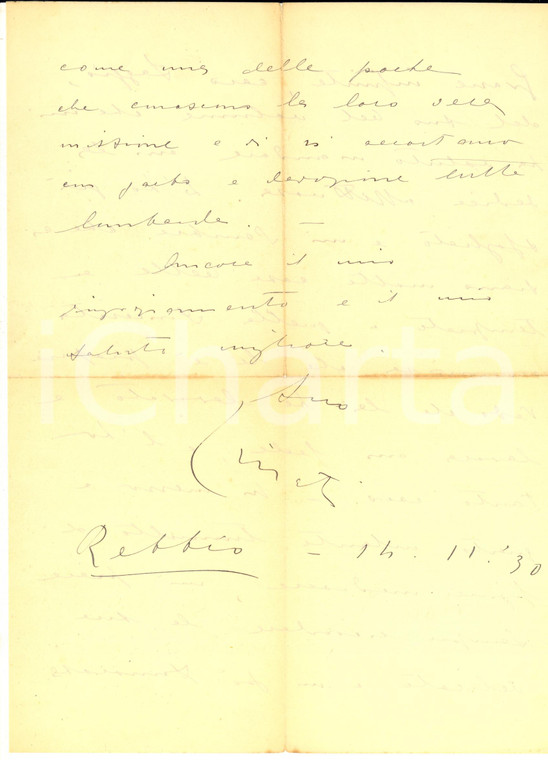 come una delle poche
che conoscono la loro vera
missione e vi si accostano
con garbo e devozione tutta
lombarda. —
Ancora il mio
ringraziamento e il mio
saluto migliore.
Suo
Rebbio - 14. 11. '30
iCharta